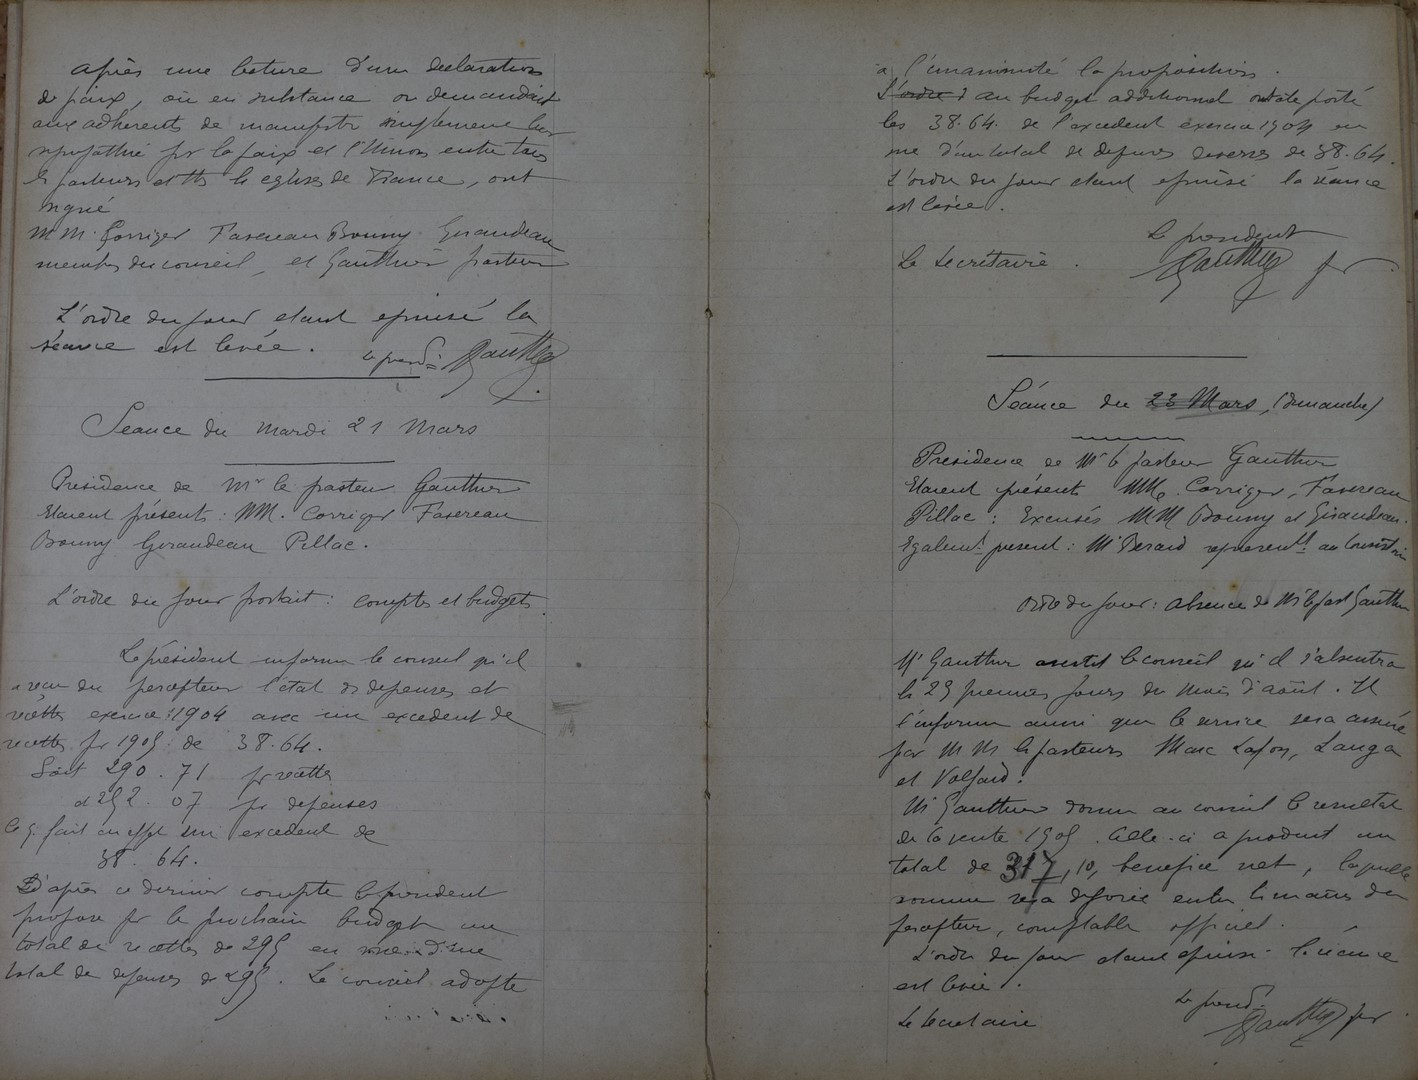 après une lecture d'une declaration
de paix, où en substance on demandait
aux adherents de manifester simplement leur
sympathie pr la paix et l'Union entre tous
les pasteurs et ttes les eglises de France, ont
signé
MM. Corriger Favereau Bouny Giraudeau
membres du conseil, et Gauthier pasteur
L'ordre du jour etant epuisé la
séance est levée.
le presdt Gauthier
Séance du mardi 21 Mars
Presidence de Mr le pasteur Gauthier
Etaient présents: MM. Corriger Favereau
Bouny Giraudeau Pillac.
L'ordre du jour portait: comptes et budgets.
Le président informe le conseil qu'il
a reçu du percepteur l'état des depenses et
recettes exercice 1904 avec un excedent de
recettes pr 1905 de 38.64.
Soit 290.71 pr recettes
et 252.07 pr depenses
ce q. fait en effet un excedent de
38.64.
D'après ce dernier compte le president
propose pr le prochain budget un
total de recettes de 295 en d'une
total de depenses de 295. Le conseil adopte
à l'unanimité la proposition.
L'ordre d au budget additionnel ont été porté
les 38.64. de l'excedent exercice 1904 en
vue d'un total de depenses diverses de 38.64.
L'ordre du jour etant epuisé la séance
est levée.
Le president
Le secrétaire. Gauthier pr
Séance du 23 Mars, (dimanche)
Presidence de Mr le pasteur Gauthier
Etaient présents MM. Corriger, Favereau
Pillac: Excusés MM Bouny et Giraudeau.
Egalemt present: Mr Berard representt au Consistoire
Ordre du jour: absence de Mr le past Gauthier
Mr Gauthier avertit le conseil qu'il s'absentera
les 25 premiers jours du mois d'août. Il
l'informe aussi que le service sera assuré
par MM les pasteurs Marc Lafon, Langa
et
Mr Gauthier donne au conseil le resultat
de la vente 1905. Celle-ci a produit un
total de 317,10, benefice net, laquelle
somme sera deposée entre les mains du
percepteur, comptable officiel.
L'ordre du jour etant epuisé la séance
est levée.
Le presdt
Le secretaire Gauthier pr